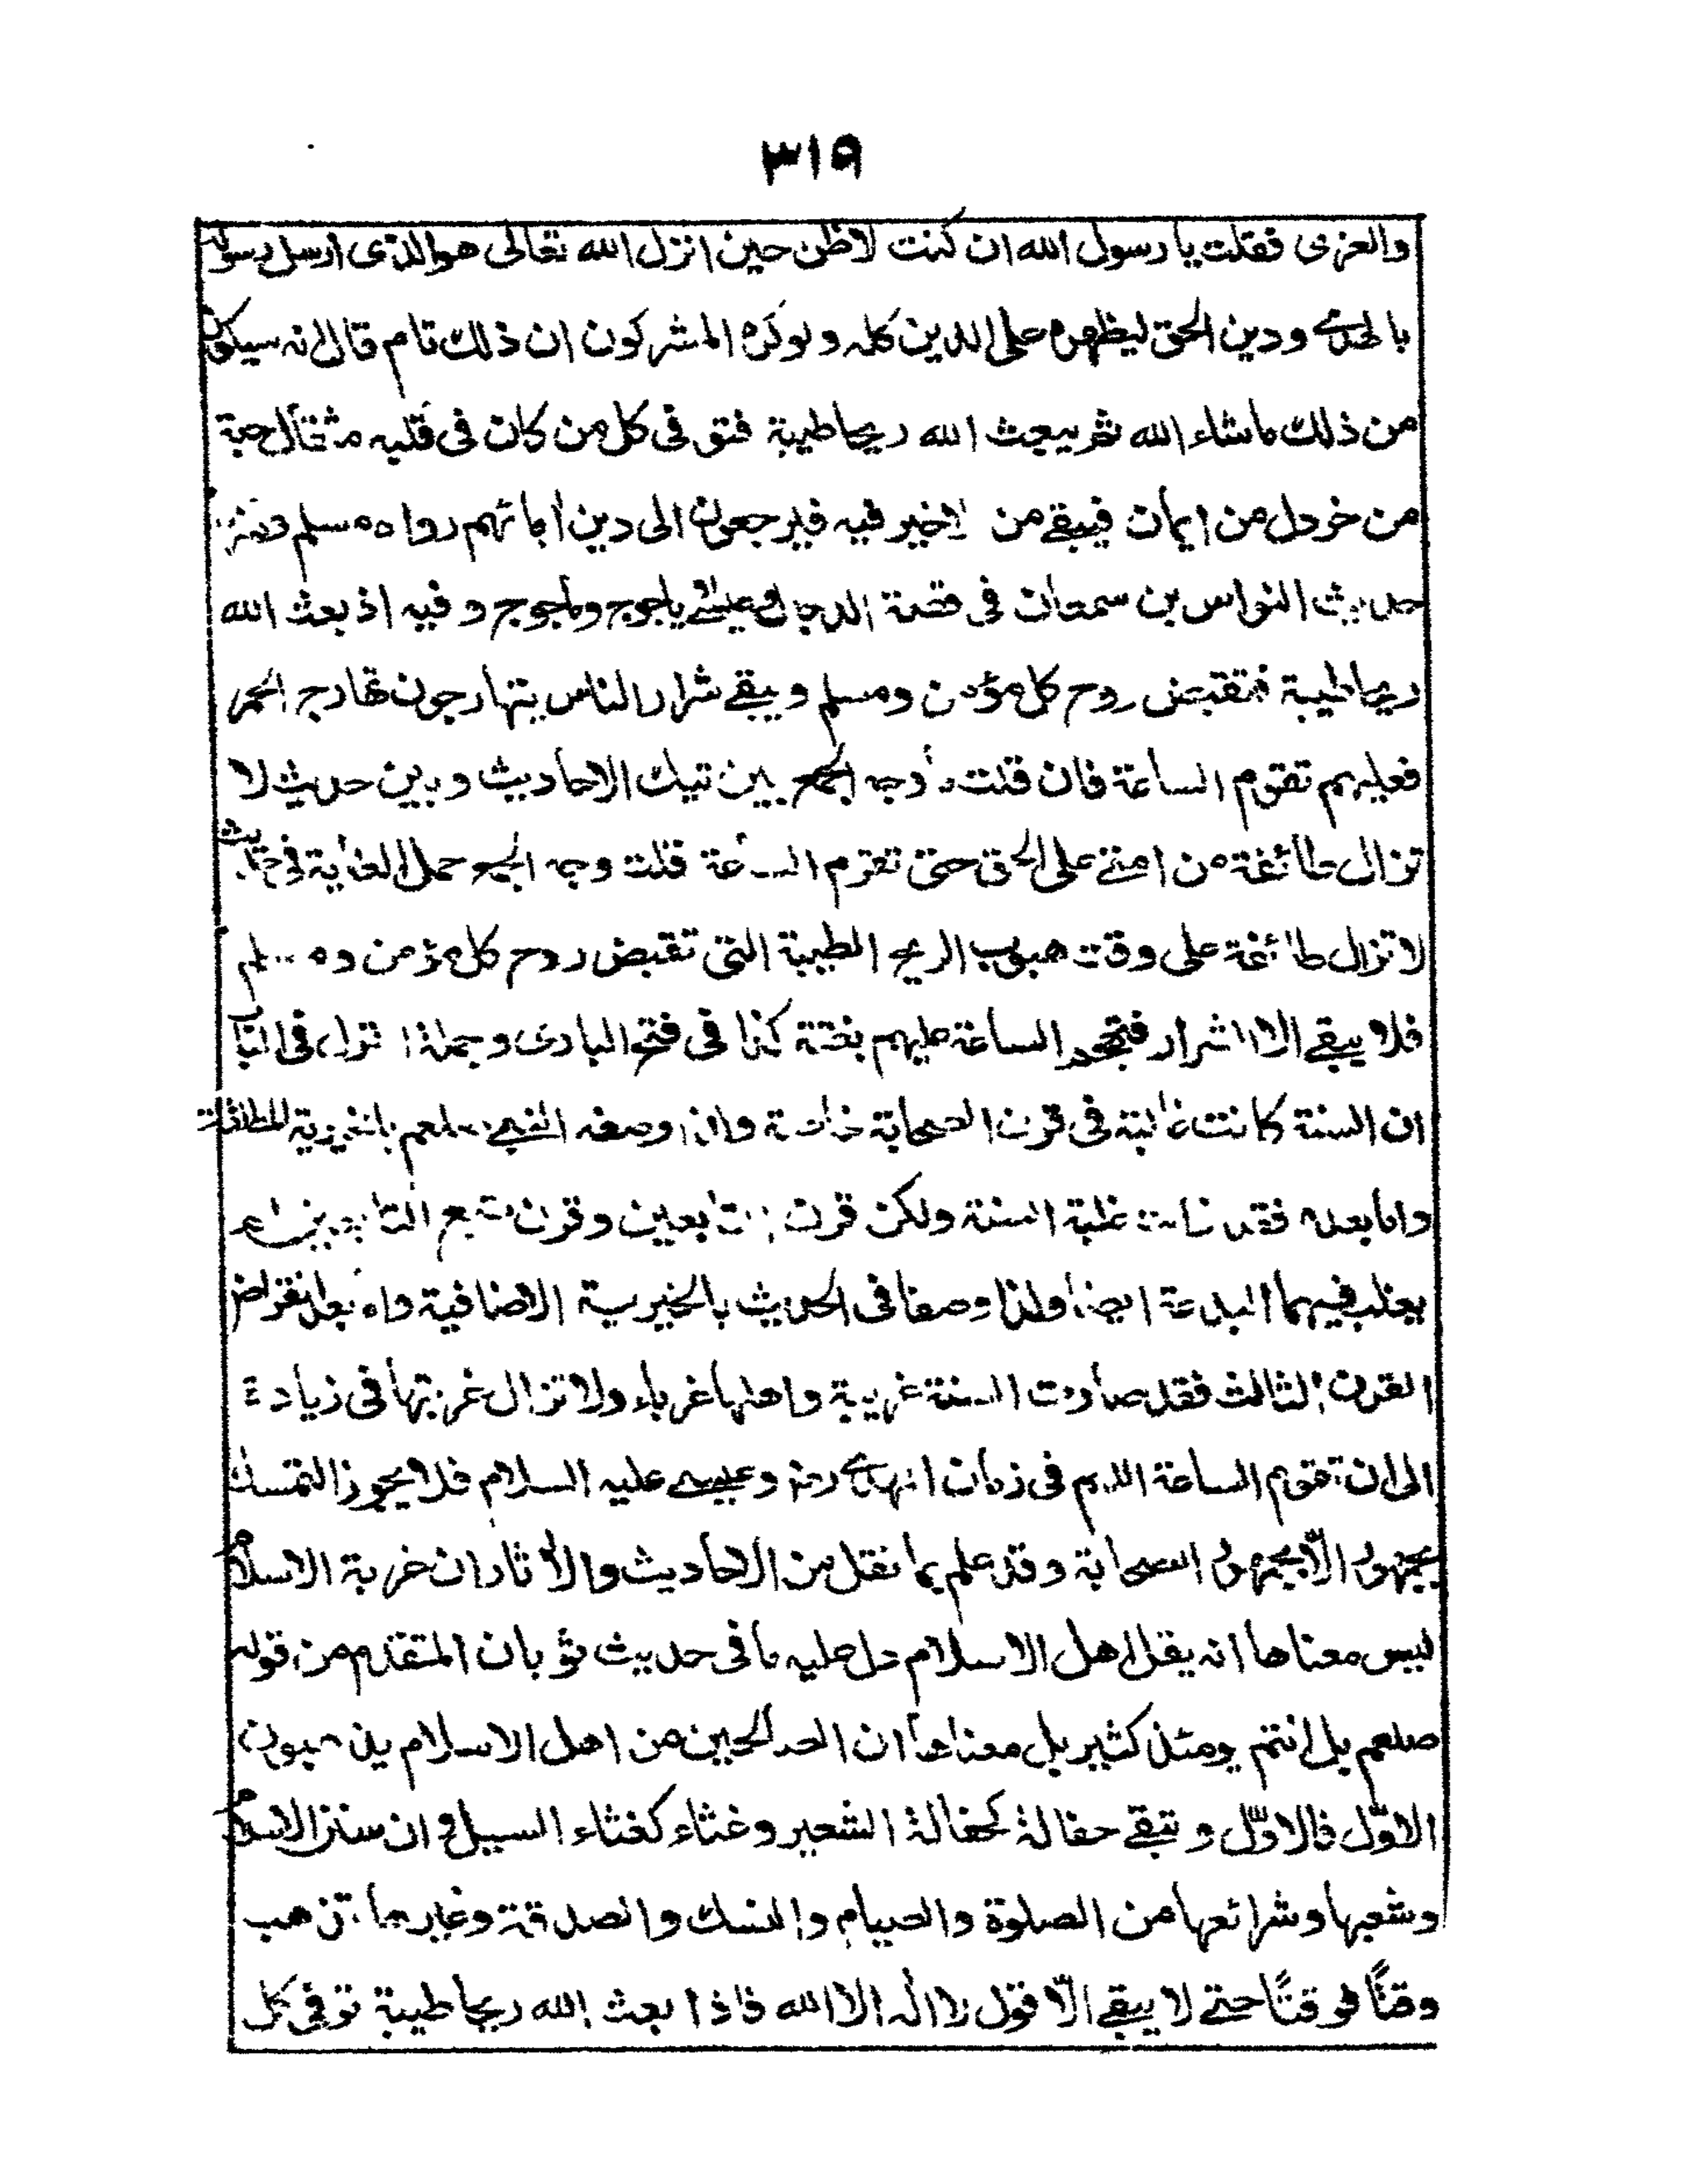 ٣١٩
والعزى فقلت يا رسول الله ان كنت لاظن حين انزل الله تعالى هوالذى ارسل رسوله
بالهدى ودين الحق ليظهره على الدين كله ولوكره المشركون ان ذلك تام قال انه سيكون
من ذلك ماشاء الله ثم يبعث الله ريحا طيبة فتوفى كل من كان فى قلبه مثقال حبة
من خردل من ايمان فيبقے من لاخير فيه فيرجعون الى دين أبائهم رواه مسلم ومنها
حديث النواس بن سمعان فى قصة الدجال وعيسے ياجوج وماجوج وفيه اذ بعث الله
ريحا طيبة فتقبض روح كل مؤمن ومسلم ويبقے شرار الناس يتهارجون تهارج الحمر
فعليهم تقوم الساعة فان قلت ما وجه الجمع بين تيك الاحاديث وبين حديث لا
تزال طائفة من امتے على الحق حتى تقوم الساعة قلت وجه الجمع حمل الغاية فى حديث
لا تزال طائفة على وقت هبوب الريح الطيبة التى تقبض روح كل مؤمن ومسلم
فلا يبقے الا اشرار فتهجم الساعة عليهم بغتة كذا فى فتح البارى وجملة نزاع فى الباب
ان السنة كانت غالبة فى قرن الصحابة خاصة ولذا وصفه النبے صلعم بالخيرية المطلقة
واما بعده فقد غلبة السنة ولكن قرن التابعين وقرن تبع التابعين لم
يغلب فيهما البدعة ايضا ولذا وصفا فى الحديث بالخيرية الاضافية واما بعد انقراض
القرن الثالث فقد صارت السنة غريبة واهلها غرباء ولا تزال غربتها فى زيادة
الى ان تقوم الساعة اللهم فى زمان المهدے رضہ وعيسے عليه السلام فلا يجوز التمسك
بجمهور الّا بجمهور الصحابة وقد علم بما نقل من الاحاديث والأثار ان غربة الاسلام
ليس معناها انه يقل اهل الاسلام دل عليه ما فى حديث ثوبان المتقدم من قوله
صلعم بل انتم يومئذ كثير بل معناها ان الصالحين من اهل الاسلام يذهبون
الاوّل فالاوّل وتبقے حفالة كحفالة الشعير وغثاء كغثاء السيل وان سنن الاسلام
وشعبها وشرائعها من الصلوة والصيام والنسك والصدقة وغيرها تذهب
وقتًا فوقتًا حتے لا يبقے الّا قول لا اله الا الله فاذا بعث الله ريحا طيبة توفى كل